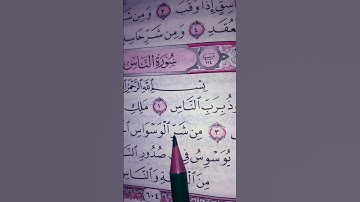 سِقٍ إِذَا وَقَبَ ٣ وَمِن شَ
لْعُقَدِ ٤ وَمِن شَرِّ حَاسِ
سُورَةُ النَّاسِ
بِسْمِ اللَّهِ الرَّحْمَٰنِ
ذُ بِرَبِّ النَّاسِ ١ مَلِكِ
٣ مِن شَرِّ الْوَسْوَاسِ
يُوَسْوِسُ فِي صُدُورِ النَّا
مِنَ وَالنَّاسِ
٦٠٤